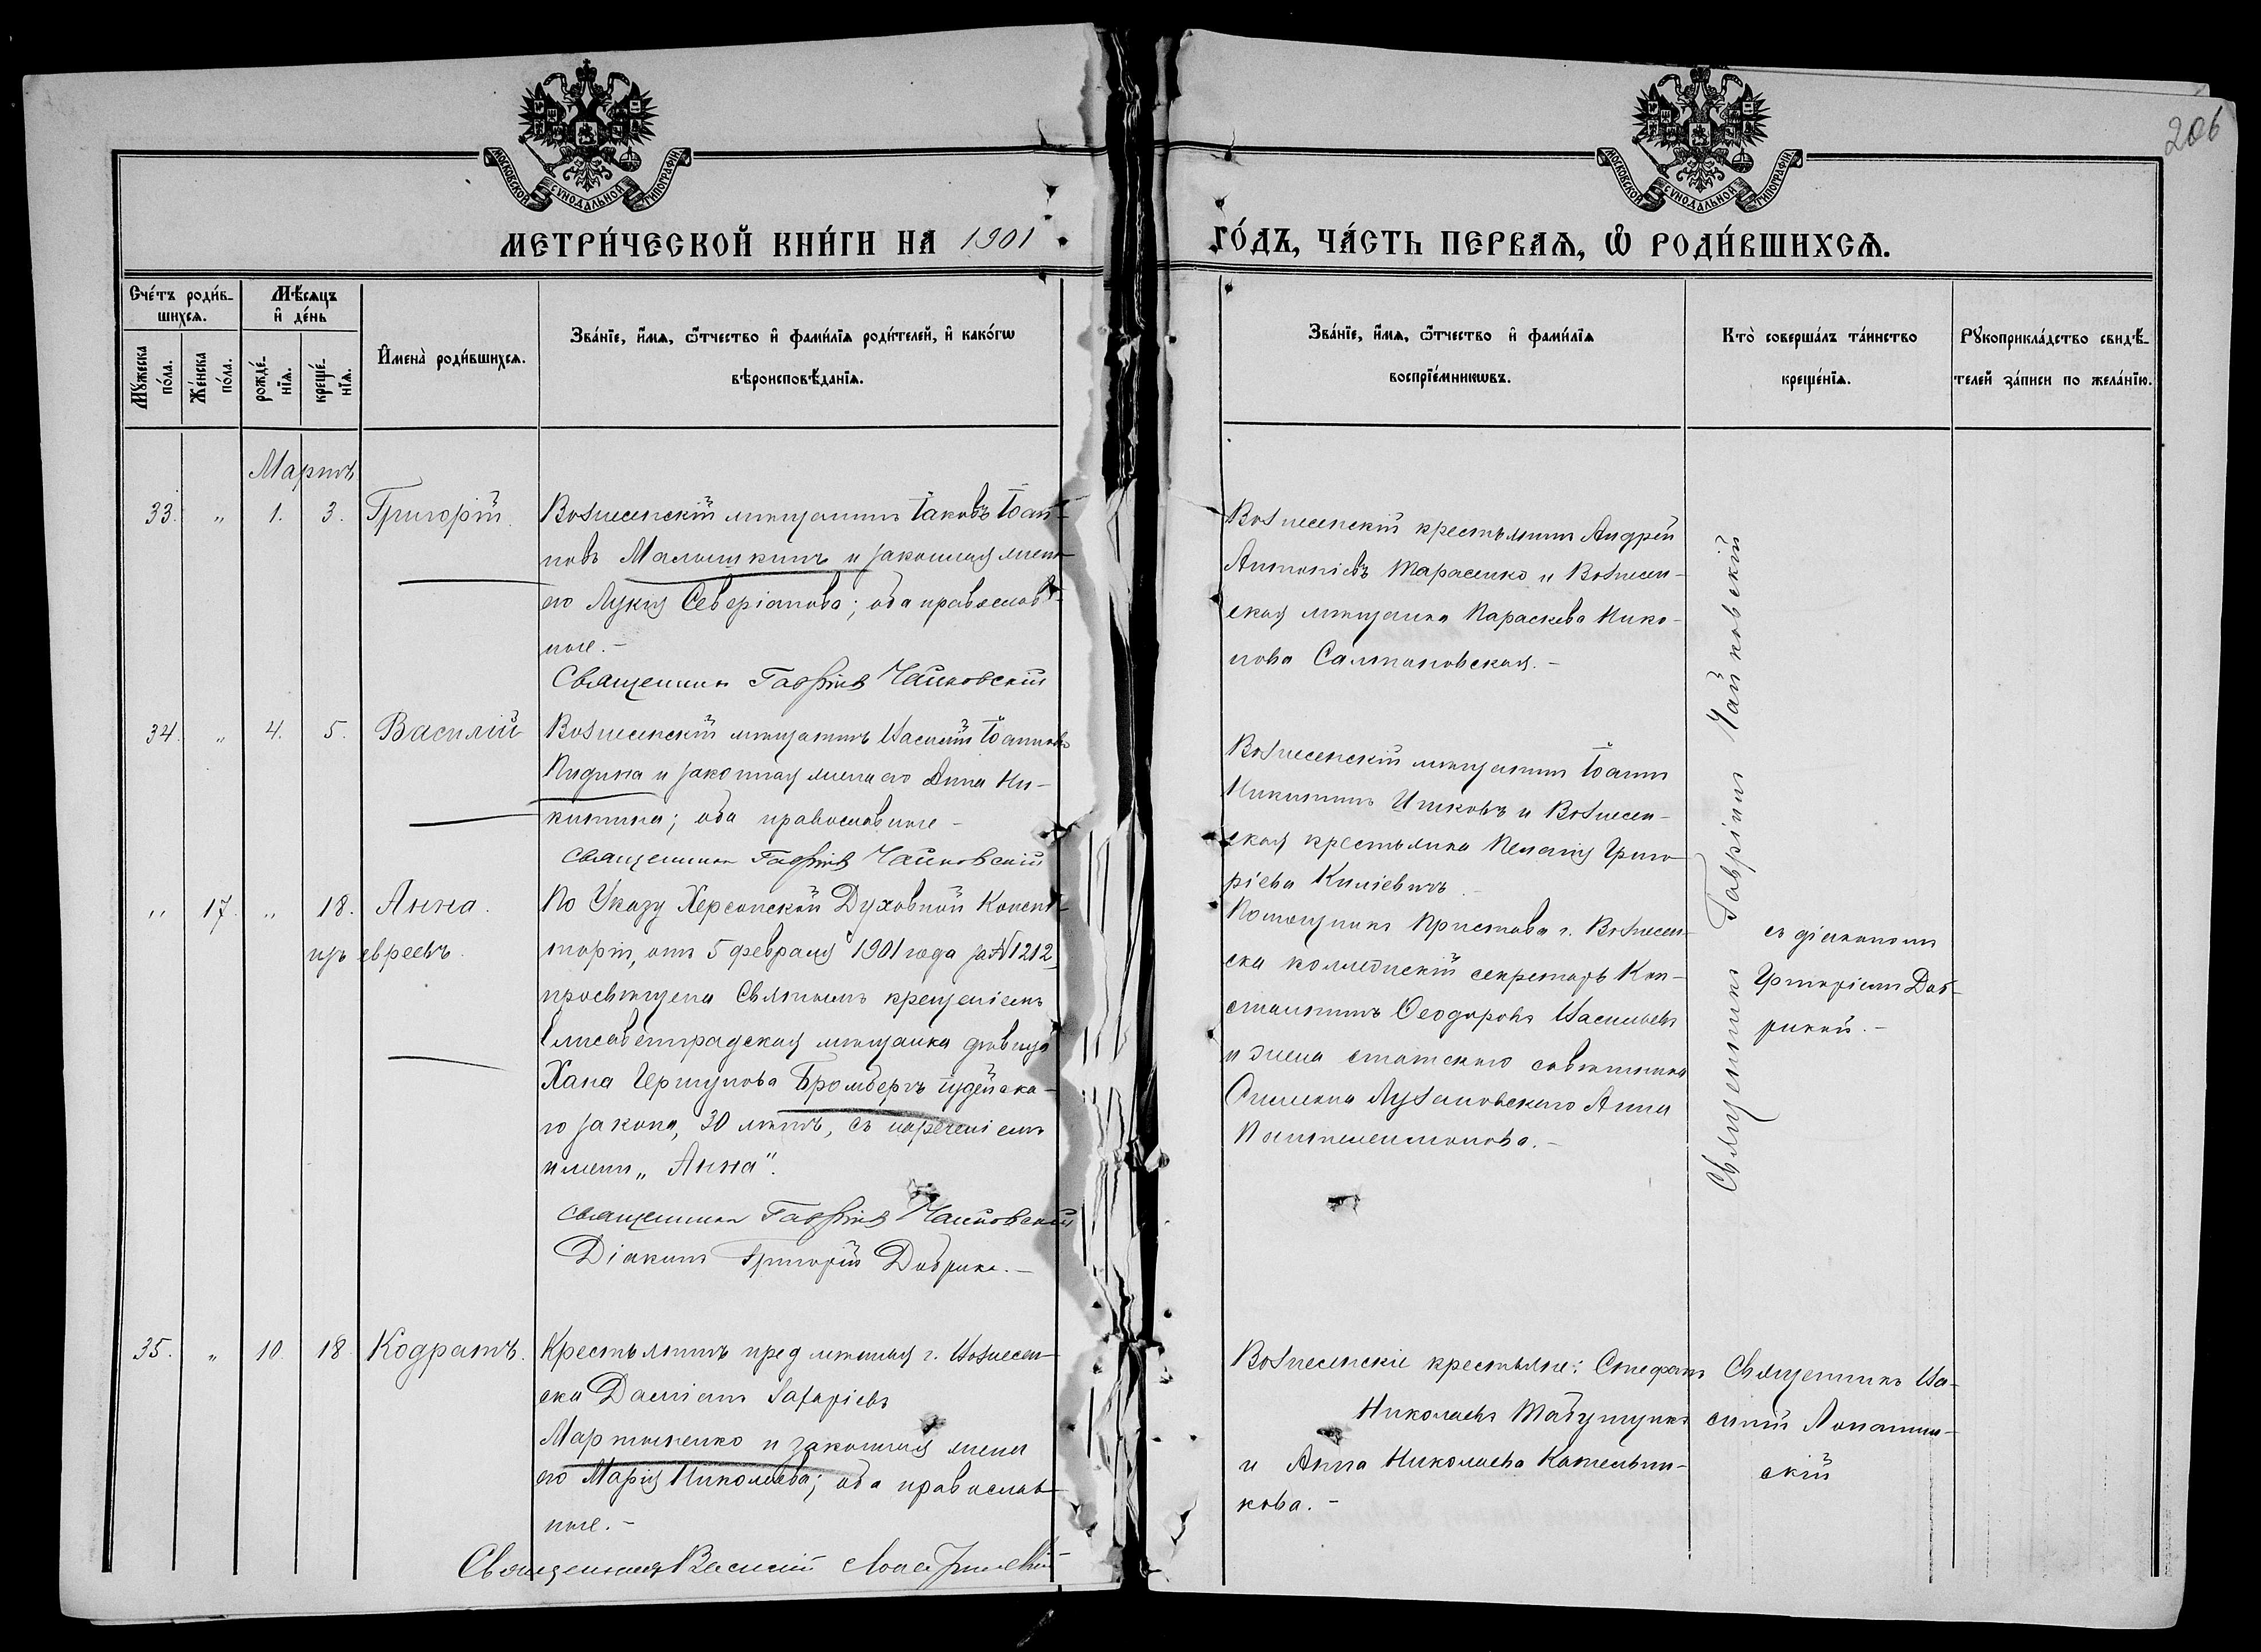 206
МОСКОВСКОЙ СѴНОДАЛЬНОЙ ТИПОГРАФІИ
МОСКОВСКОЙ СѴНОДАЛЬНОЙ ТИПОГРАФІИ
МЕТРИ́ЧЕСКОЙ КНИ́ГИ НА 1901
ГО́ДЪ, ЧА́СТЬ ПЕРВАѦ, Ѡ РОДИ́ВШИХСѦ.
Сче́тъ роди́в-
шихсѧ.
Мѣ́сѧцъ
и҆ де́нь
Мꙋ́жеска
по́ла.
Же́нска
по́ла.
рожде́-
нїѧ.
креще́-
нїѧ.
И҆мена̀ роди́вшихсѧ.
Зва́нїе, и҆́мѧ, ѻ҆́тчество и҆ фами́лїѧ роди́телей, и҆ како́гѡ
вѣроисповѣ́данїѧ.
Зва́нїе, и҆́мѧ, ѻ҆́тчество и҆ фами́лїѧ
воспрїе́мникѡвъ.
Кто̀ соверша́лъ та́инство
креще́нїѧ.
Рꙋкоприкла́дство свидѣ́-
телей за́писи по жела́нїю.
Мартъ
33. " 1. 3. Григорій.
Вознесенскій мѣщанинъ Іаковъ Іоан-
новъ Малышкинъ и законная жена
его Лукія Северіанова; оба православ-
ные.-
Священникъ Гавріилъ Чайковскій
Вознесенскій крестьянинъ Андрей
Антоніевъ Тарасенко и Вознесен-
ская мѣщанка Параскева Нико-
нова Салтановская.-
Священникъ Гавріилъ Чайковскій
34. " 4. 5. Василій
Вознесенскій мѣщанинъ Василій Іоанновъ
Пидина и законная жена его Анна Ни-
китина; оба православные -
Священникъ Гавріилъ Чайковскій
Вознесенскій мѣщанинъ Іоаннъ
Никитинъ и Вознесен-
ская крестьянка Пелагія Григо-
ріева
" 17. " 18. Анна.
изъ евреевъ.
По Указу Херсонской Духовной Консис-
торіи, отъ 5 февраля 1901 года за № 1212
просвѣщена Святымъ крещеніемъ
Елисаветградская мѣщанка дѣвица
Хана Гершунова Бромбергъ іудейска-
го закона, 30 лѣтъ, съ нареченіемъ
имени „Анна".
Священникъ Гавріилъ Чайковскій
Діаконъ Григорій Добрика.-
Помощникъ Пристава г. Вознесен-
ска коллежскій секретарь Кон-
стантинъ Ѳеодоровъ Васильевъ
и жена статскаго совѣтника
Анна
Пантелеимонова.-
съ діакономъ
Григоріемъ Доб-
рикой.-
35. " 10. 18 Кодратъ.
Крестьянинъ предмѣстья г. Вознесен-
ска Даміанъ Захаріевъ
Мартыненко и законная жена
его Марія Николаева; оба православ-
ные.-
Священникъ Василій Лопатинскій
Вознесенскіе крестьяне: Стефанъ
Николаевъ
и Анна Николаева Котельни-
кова.-
Священникъ Ва-
силій Лопатин-
скій